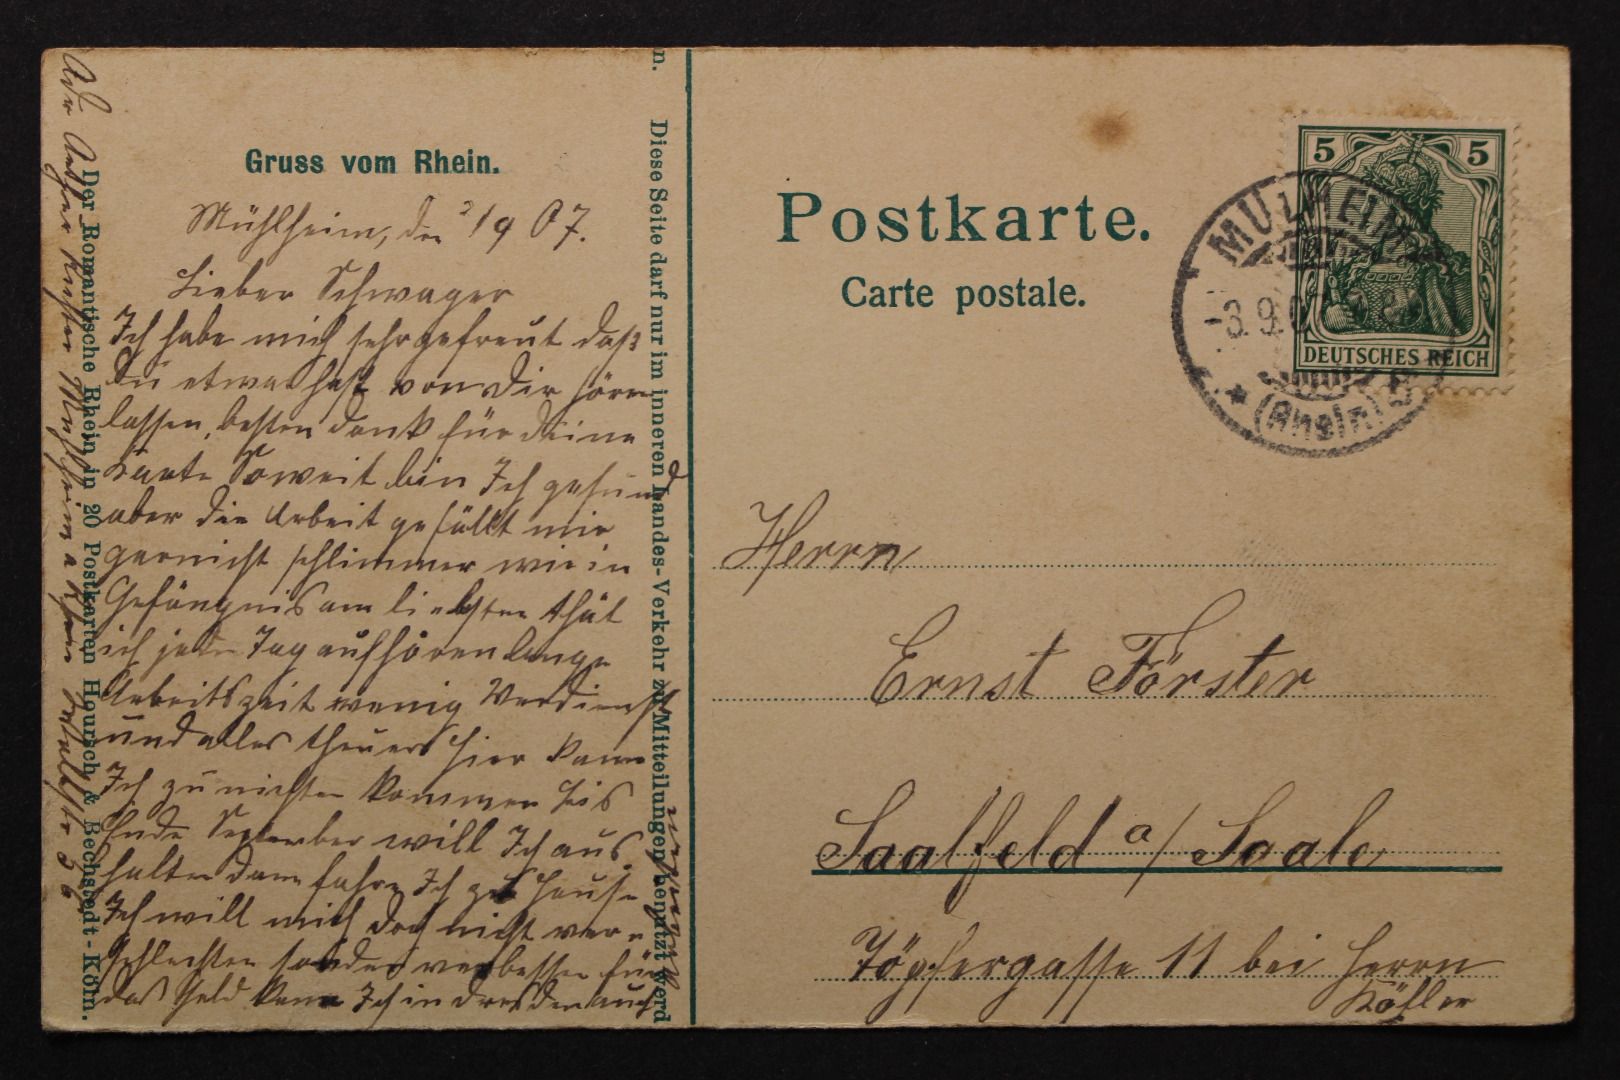 Gruss vom Rhein.
Mühlheim, den 2/9 07.
Lieber Schwager
Ich habe mich sehr gefreut daß
Du etwas hast von Dir hören
lassen, besten Dank für deine
Karte Soweit bin Ich gesund
aber die Arbeit gefällt mir
garnicht schlimmer wie in
Gefängnis am liebsten thät
ich jeden Tag aufhören lange
Arbeitszeit wenig Verdienst
und alles theuer hier kann
Ich zu nichten kommen bis
Ende September will Ich aus
halten dann fahre Ich zu Hause
Ich will mich doch nicht ver=
schlechten sonder verbessen für
das Geld kann Ich in Dresden auch
Mühlheim a Rhein
56
Der Romantische Rhein in 20 Postkarten Hoursch & Bechstedt-Köln.
Diese Seite darf nur im inneren Landes-Verkehr zu Mitteilungen benutzt werd
n.
Postkarte.
Carte postale.
5 5
DEUTSCHES REICH
MÜLHEIM
-3.9.0
(Rhein)
Herrn
Ernst Förster
Saalfeld a/ Saale
Töpfergasse 11 bei Herrn
Köhler